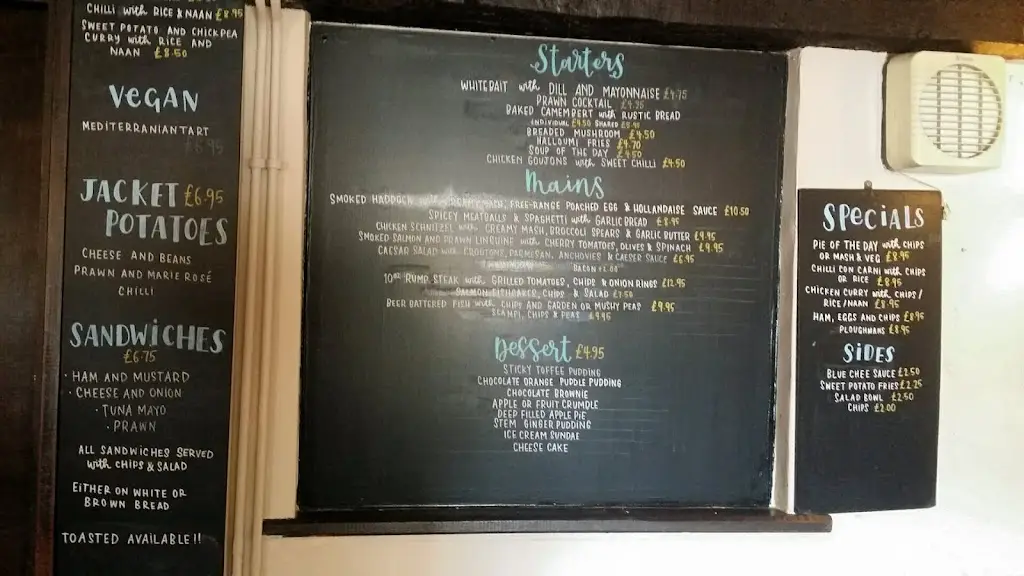 CHILLI with RICE & NAAN £8.95
SWEET POTATO AND CHICKPEA
CURRY with RICE AND
NAAN £8.50
VEGAN
MEDITERRANIAN TART
£6.95
JACKET £6.95
POTATOES
CHEESE AND BEANS
PRAWN AND MARIE ROSÉ
CHILLI
SANDWICHES
£6.75
· HAM AND MUSTARD
· CHEESE AND ONION
· TUNA MAYO
· PRAWN
ALL SANDWICHES SERVED
with CHIPS & SALAD
EITHER ON WHITE OR
BROWN BREAD
TOASTED AVAILABLE!!
Starters
WHITEBAIT with DILL AND MAYONNAISE £4.75
PRAWN COCKTAIL £4.95
BAKED CAMEMBERT with RUSTIC BREAD
INDIVIDUAL £4.50 SHARED
BREADED MUSHROOM £4.50
HALLOUMI FRIES £4.70
SOUP OF THE DAY £4.50
CHICKEN GOUJONS with SWEET CHILLI £4.50
Mains
SMOKED HADDOCK MASH, FREE-RANGE POACHED EGG & HOLLANDAISE SAUCE £10.50
SPICEY MEATBALLS & SPAGHETTI with GARLIC BREAD £8.95
CHICKEN SCHNITZEL with CREAMY MASH, BROCCOLI SPEARS & GARLIC BUTTER £9.95
SMOKED SALMON AND PRAWN LINGUINE with CHERRY TOMATOES, OLIVES & SPINACH £9.95
CAESAR SALAD with CROUTONS, PARMESAN, ANCHOVIES & CAESER SAUCE £6.95
BACON £1.00
10oz RUMP STEAK with GRILLED TOMATOES, CHIPS & ONION RINGS £12.95
SALMON FISHCAKES, CHIPS & SALAD £7.50
BEER BATTERED FISH with CHIPS AND GARDEN OR MUSHY PEAS £9.95
SCAMPI, CHIPS & PEAS £9.95
Dessert £4.95
STICKY TOFFEE PUDDING
CHOCOLATE ORANGE PUDDLE PUDDING
CHOCOLATE BROWNIE
APPLE OR FRUIT CRUMBLE
DEEP FILLED APPLE PIE
STEM GINGER PUDDING
ICE CREAM SUNDAE
CHEESE CAKE
SPECIALS
PIE OF THE DAY with CHIPS
OR MASH & VEG £8.95
CHILLI CON CARNI with CHIPS
OR RICE £8.95
CHICKEN CURRY with CHIPS/
RICE/NAAN £8.95
HAM, EGGS AND CHIPS £8.95
PLOUGHMANS £8.95
SIDES
BLUE CHEE SAUCE £2.50
SWEET POTATO FRIES £2.25
SALAD BOWL £2.50
CHIPS £2.00